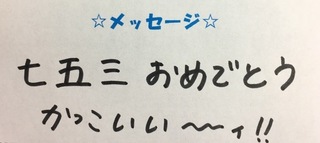 ☆メッセージ☆
七五三 おめでとう
かっこいい〜〜ィ!!